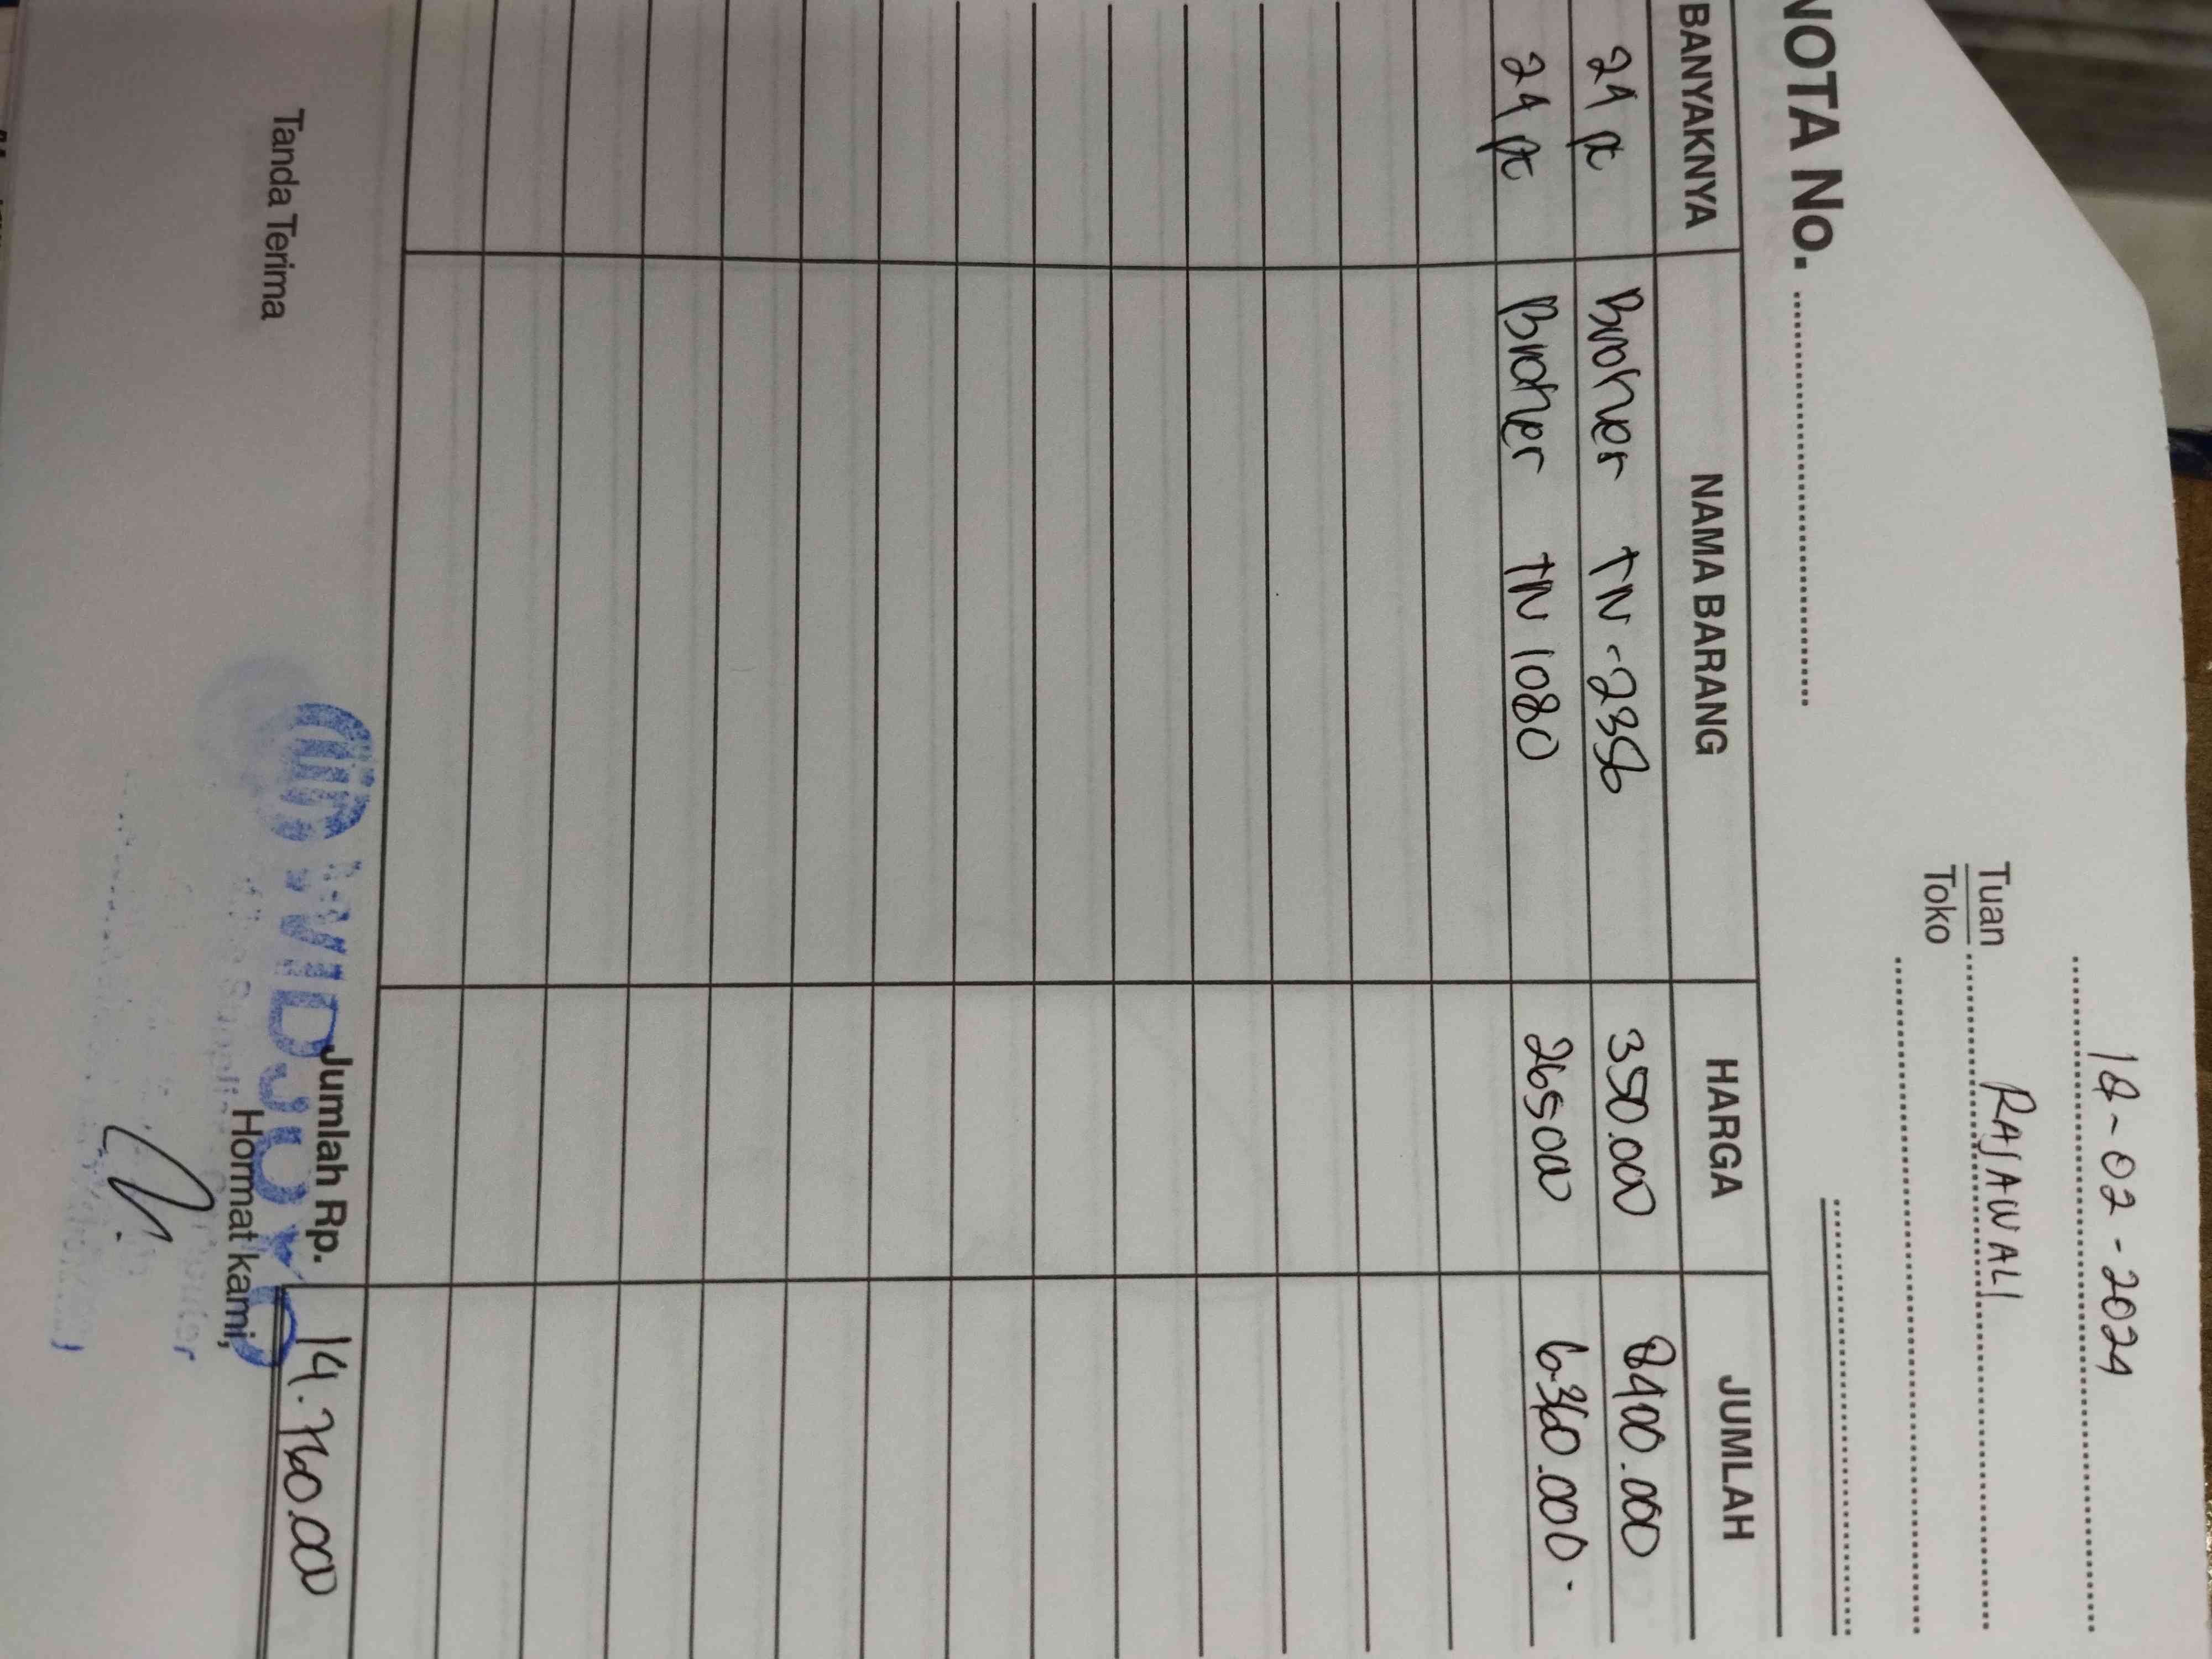 18-02-2024
Tuan RAJAWALI
Toko
NOTA No.
BANYAKNYA NAMA BARANG HARGA JUMLAH
24 pc Brother TN-2356 350.000 8400.000
24 pc Brother TN 1080 265000 6.360.000.
Jumlah Rp. 14.760.000
Tanda Terima Hormat kami,
WIDJOYO